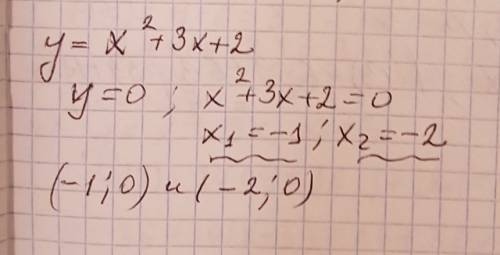 y = x² + 3x + 2
y = 0 ; x² + 3x + 2 = 0
x₁ = -1 ; x₂ = -2
(-1; 0) и (-2; 0)